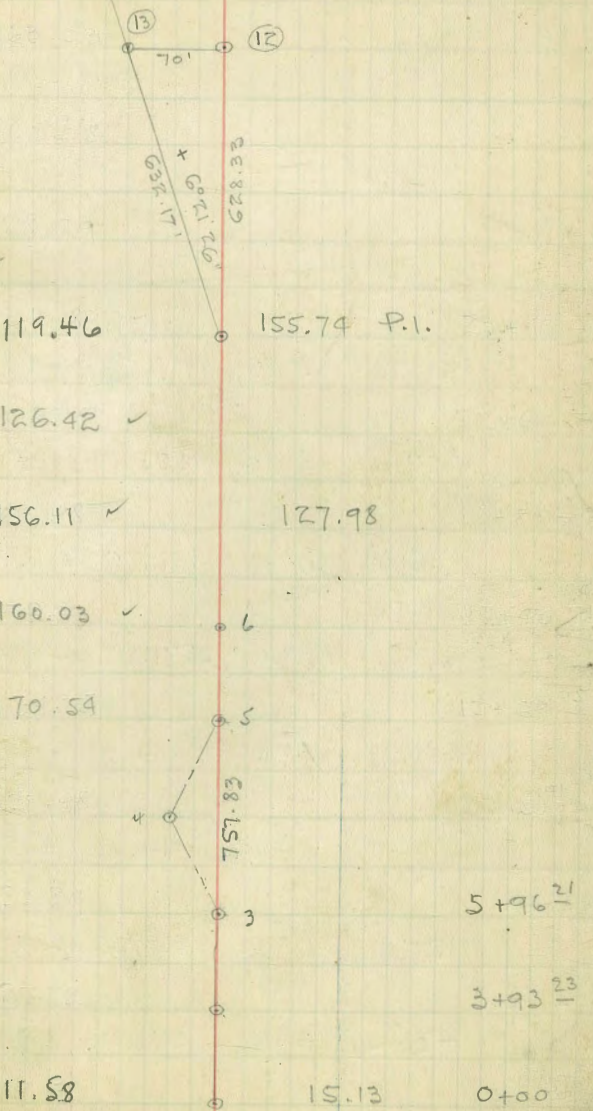 13 12
70'
628.33
+ 6°21'.26'
632.17'
119.46 155.74 P.I.
126.42 ✓
56.11 ✓ 127.98
160.03 ✓ 6
70.54 5
4 757.83
3 5+96 21
3+93 23
11.58 15.13 0+00